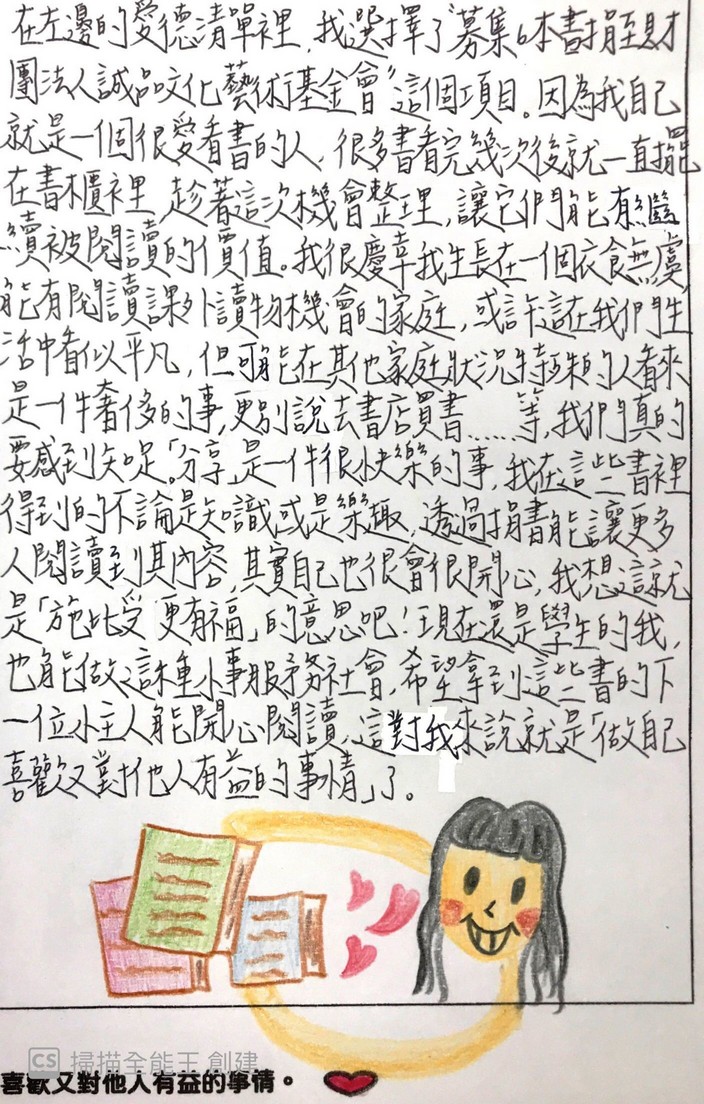 在左邊的愛德清單裡，我選擇了“募集6本書捐至財
團法人誠品文化藝術基金會”這個項目。因為我自己
就是一個很愛看書的人，很多書看完幾次後就一直擺
在書櫃裡，趁著這次機會整理，讓它們能有繼
續被閱讀的價值。我很慶幸我生長在一個衣食無虞，
能有閱讀課外讀物機會的家庭，或許這在我們生
活中看似平凡，但可能在其他家庭狀況特殊的人看來
是一件奢侈的事，更別說去書店買書……等，我們真的
要感到知足。「分享」是一件很快樂的事，我在這些書裡
得到的不論是知識或是樂趣，透過捐書能讓更多
人閱讀到其內容，其實自己也很會很開心，我想這就
是「施比受更有福」的意思吧！現在還是學生的我，
也能做這種小事服務社會，希望拿到這些書的下
一位小主人能開心閱讀，這對我來說就是「做自己
喜歡又對他人有益的事情」了。
CS 掃描全能王 創建
喜歡又對他人有益的事情。